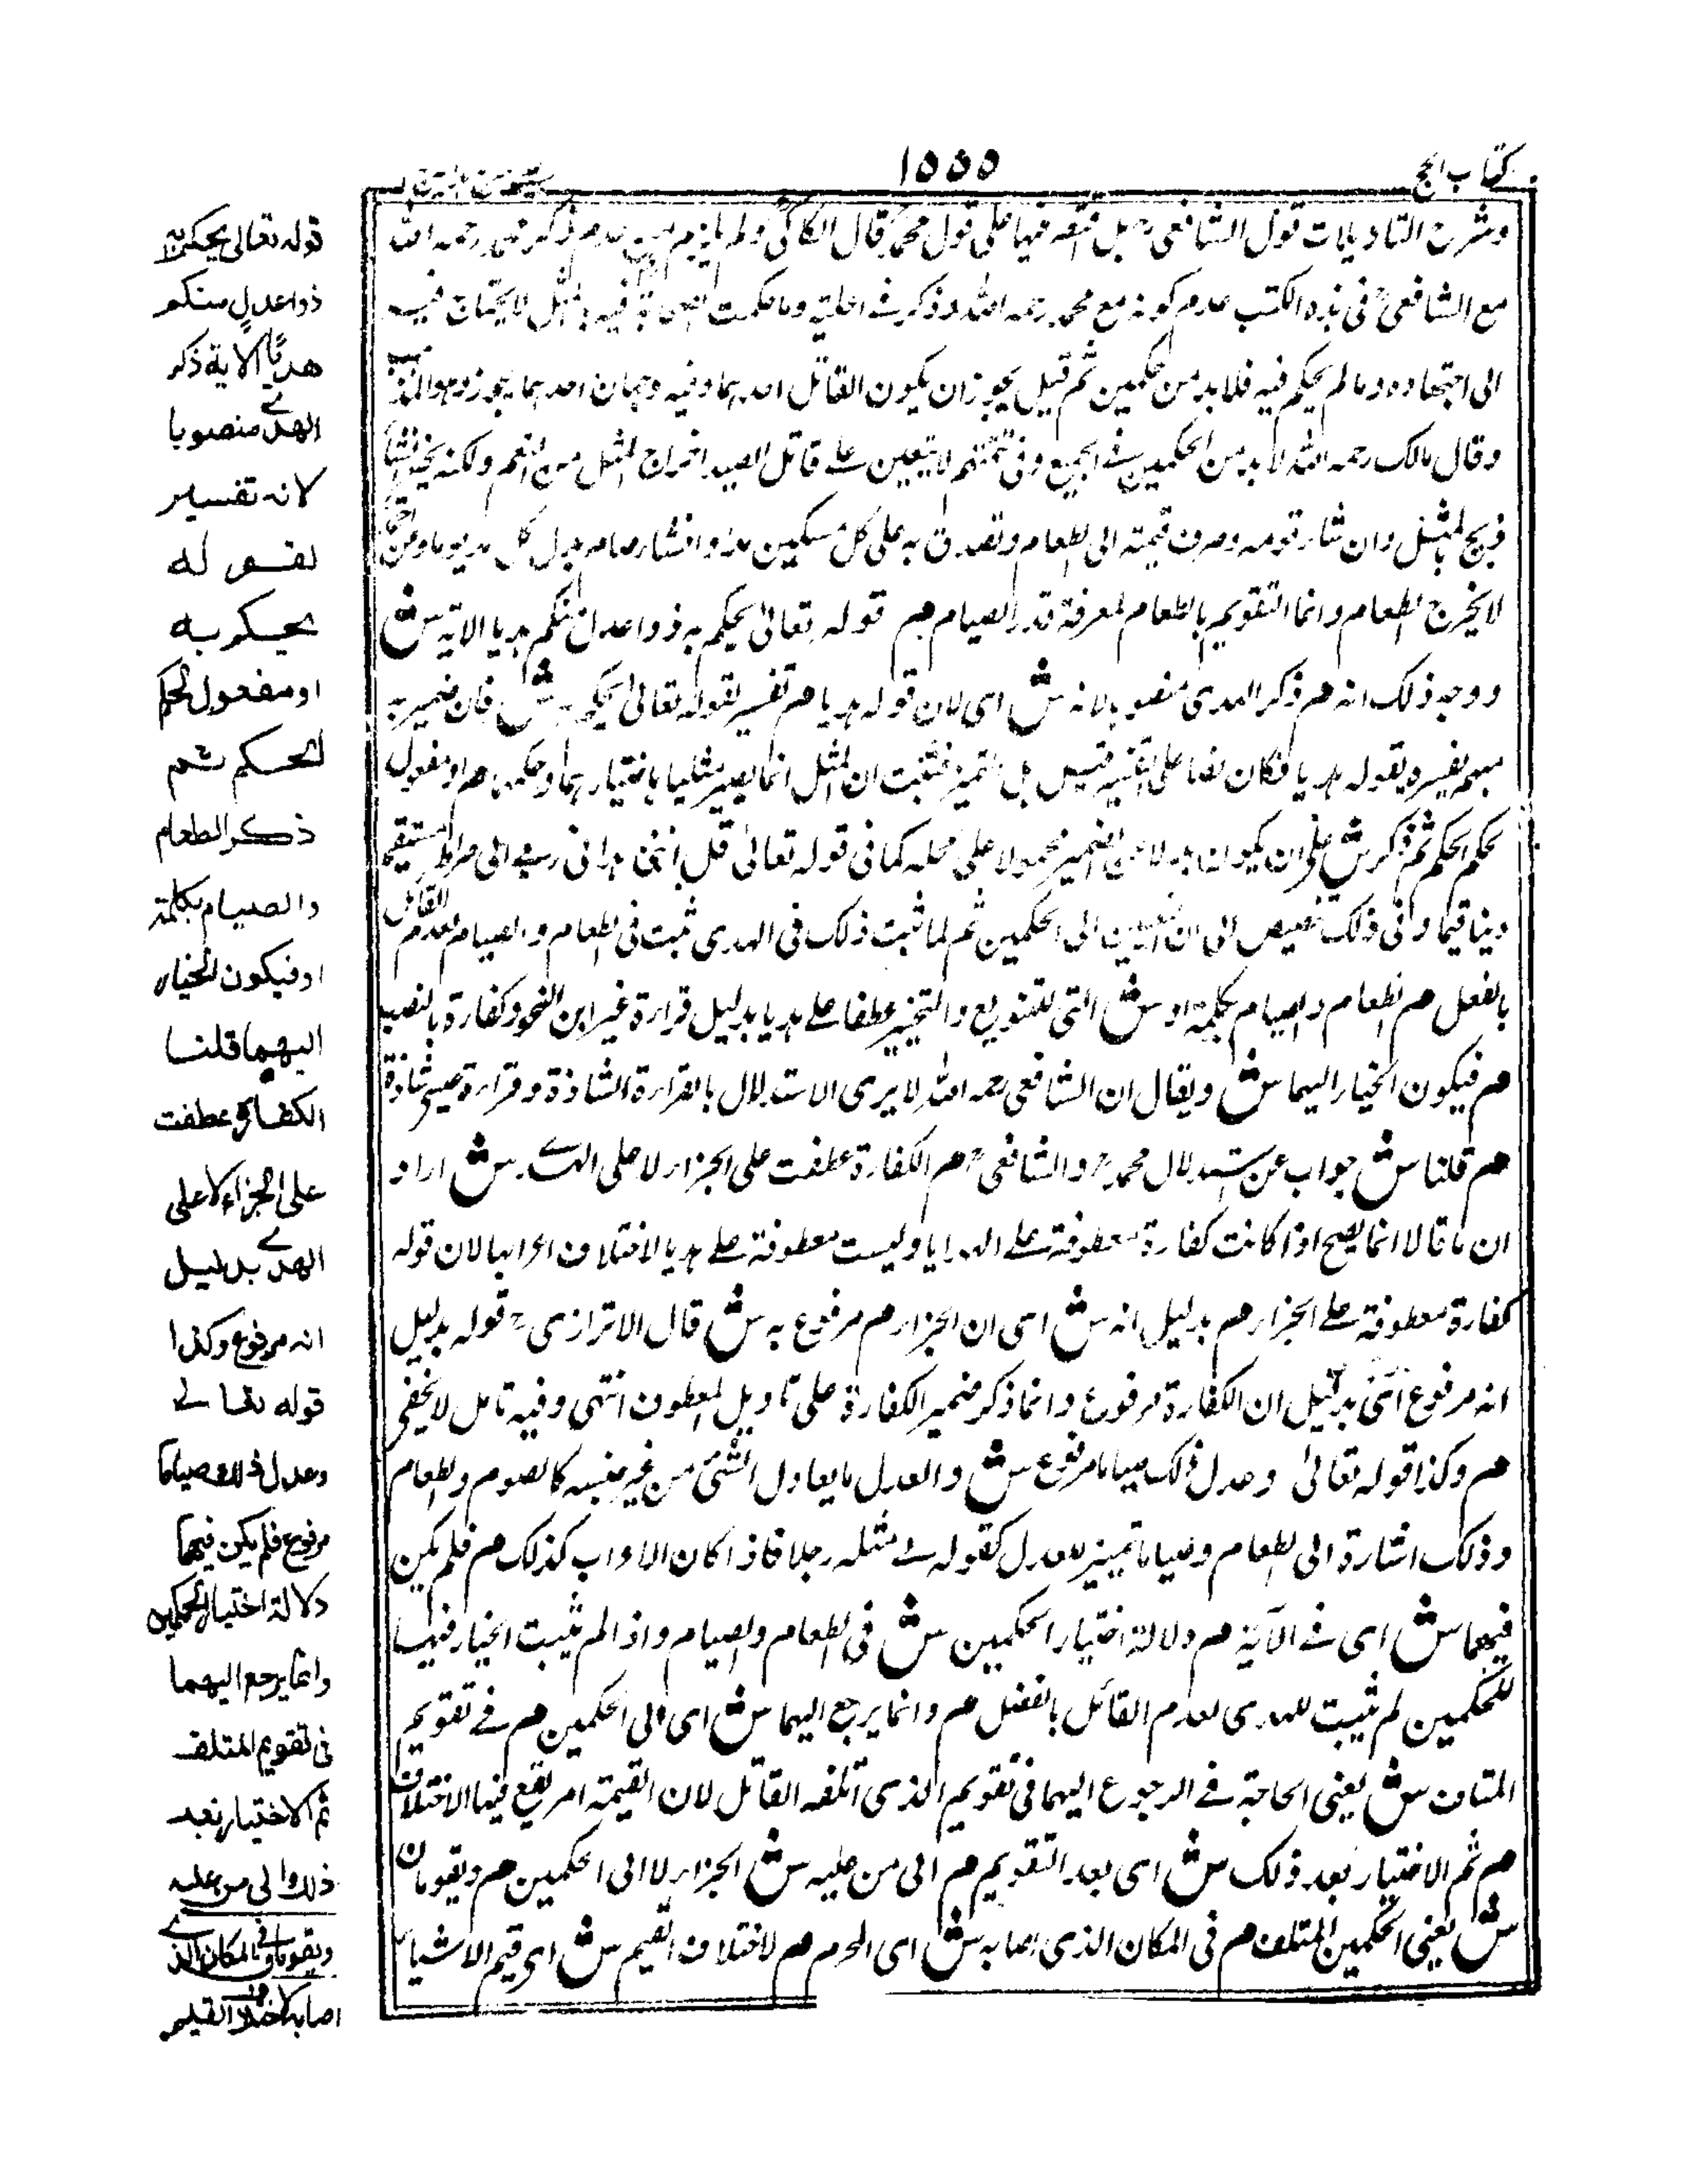 كتاب الحج
١٥٥٥
وشرح التاويلات قول الشافعي بل اقتصر فيها على قول محمد قال الكاكى ولم يلزم من عدم ذكر رحمه الله
مع الشافعي في هذه الكتب عدم كونه مع محمد رحمه الله وذكر في الحلية وما حكمت الصحابة فيه بالمثل لا يحتاج فيه
الى اجتهاده وما لم يحكم فيه فلا بد من حكمين ثم قيل يجوز ان يكون القاتل احدهما وفيه وجهان احدهما يجوز وهو المذهب
وقال مالك رحمه الله لا بد من الحكمين في الجميع وفي لا يتعين على قاتل الصيد اخراج المثل من النعم ولكنه يخير ان شاء
ذبح المثل وان شاء قومه وصرف قيمته الى الطعام وتصدق به على كل مسكين مد وان شاء صام بدل كل مد يوما
لا يخرج الطعام وانما التقويم بالطعام لمعرفة قدر الصيام م قوله تعالى يحكم به ذوا عدل منكم هديا الاية ش
ووجه ذلك انه م ذكر الهدى منصوبا لانه ش اى لان قوله هديا م تفسير لقوله تعالى يحكم به ش فان ضمير به
مبهم يفسره بقوله هديا فكان نصا على التفسير وقيل بل تمييز فثبت ان المثل انما يصير مثليا باختيارهما وحكمهما م او مفعول
لحكم الحكم ثم ذكر ش على ان يكون بدلا عن الضمير محمولا على محله كما في قوله تعالى قل اننى هدانى ربى الى صراط مستقيم
دينا قيما وفى ذلك تنصيص الى ان التعيين الى الحكمين ثم لما ثبت ذلك فى الهدى ثبت فى الطعام والصيام لعدم القائل
بالفصل م الطعام والصيام بكلمة او ش التى للتنويع والتخيير عطفا على هديا بدليل قراءة غير ابن النحو وكفارة بالنصب
م فيكون الخيار اليهما ش ويقال ان الشافعي رحمه الله لا يرى الاستدلال بالقراءة الشاذة وقراءة عيسى شاذة
م قلنا ش جواب عن استدلال محمد والشافعي م الكفارة عطفت على الجزاء لا على الهدى ش اراد
ان ما قالا انما يصح اذا كانت كفارة معطوفة على الهدايا وليست معطوفة على هديا لاختلاف اعرابها لان قوله
كفارة معطوفة على الجزاء م بدليل انه ش اى ان الجزاء م مرفوع به ش قال الاترازى قوله بدليل
انه مرفوع اى بدليل ان الكفارة مرفوع وانما ذكر ضمير الكفارة على تاويل المعطوف انتهى وفيه تامل لا يخفى
م وكذا قوله تعالى وعدل ذلك صياما مرفوع ش والعدل ما يعادل الشئ من غير جنسه كالصوم والطعام
وذلك اشارة الى الطعام وصياما تمييز للعدل كقوله لى مثله رجلا فاذا كان الاعراب كذلك م فلم يكن
فيهما ش اى فى الآية م دلالة اختيار الحكمين ش فى الطعام والصيام واذا لم يثبت الخيار فيهما
للحكمين لم يثبت للهدى لعدم القائل بالفصل م وانما يرجع اليهما ش اى الى الحكمين م فى تقويم
المتلف ش يعنى الحاجة فى الرجوع اليهما فى تقويم الذى اتلفه القاتل لان القيمة امر يقع فيها الاختلاف
م ثم الاختيار بعد ذلك ش اى بعد التقويم م الى من عليه ش الجزاء لا الى الحكمين م ويقومان
ش يعنى الحكمين المتلف م فى المكان الذى اصابه ش اى المحرم م لاختلاف القيم ش اى قيم الاشياء
قوله تعالى يحكم به
ذوا عدل منكم
هديا الاية ذكر
الهدى منصوبا
لانه تفسير
لقوله
يحكم به
او مفعول لحكم
الحكم ثم
ذكر الطعام
والصيام بكلمة
او فيكون الخيار
اليهما قلنا
الكفارة عطفت
على الجزاء لا على
الهدى بدليل
انه مرفوع وكذا
قوله تعالى
وعدل ذلك صياما
مرفوع فلم يكن فيهما
دلالة اختيار الحكمين
وانما يرجع اليهما
فى تقويم المتلف
ثم الاختيار بعد
ذلك الى من عليه
ويقومان فى المكان الذى
اصابه لاختلاف القيم